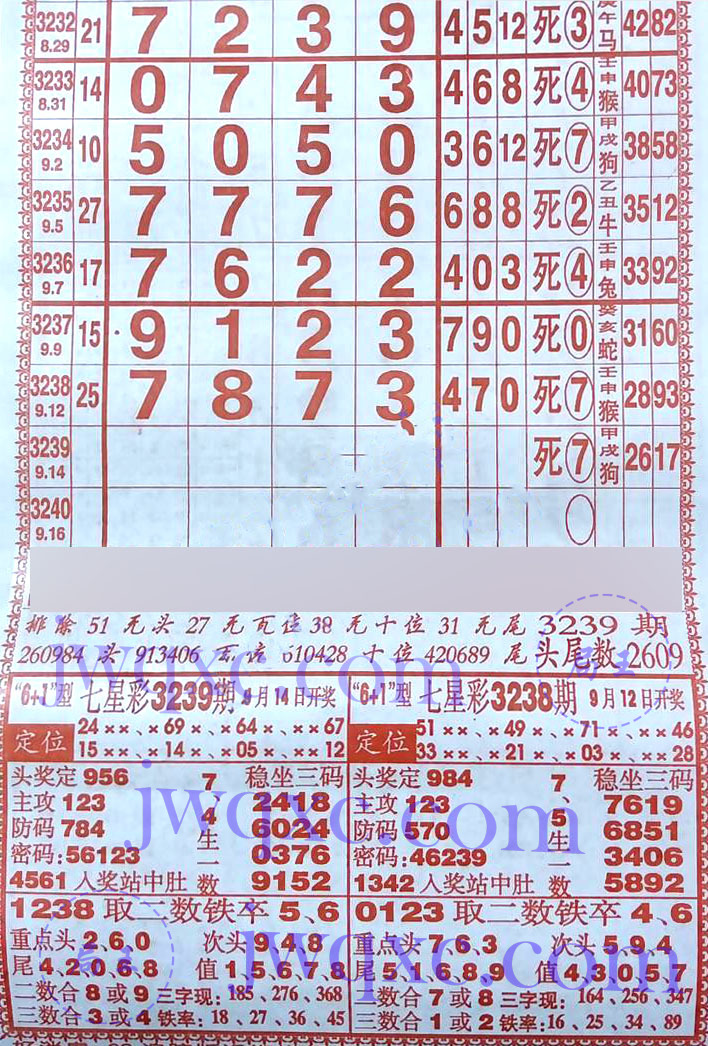 3232 8.29 21 7 2 3 9 4 5 12 死③ 庚午马 4282
3233 8.31 14 0 7 4 3 4 6 8 死④ 壬申猴 4073
3234 9.2 10 5 0 5 0 3 6 12 死⑦ 甲戌狗 3858
3235 9.5 27 7 7 7 6 6 8 8 死② 乙丑牛 3512
3236 9.7 17 7 6 2 2 4 0 3 死④ 壬申兔 3392
3237 9.9 15 9 1 2 3 7 9 0 死⓪ 癸亥蛇 3160
3238 9.12 25 7 8 7 3 4 7 0 死⑦ 壬申猴 2893
3239 9.14 死⑦ 甲戌狗 2617
3240 9.16
排除 51 无头 27 无百位 38 无十位 31 无尾 3239 期
260984 头 913406 百位 610428 十位 420689 尾 头尾数 2609
"6+1"型 七星彩3239期 9月14日开奖
定位 24××、×69×、×64×、××67
15××、×14×、×05×、××12
头奖定 956 7、4生一数 稳坐三码
主攻 123 2418
防码 784 6024
密码:56123 0376
4561 入奖站中肚 9152
1238 取二数铁卒 5、6
重点头 2、6、0 次头 9、4、8
尾 4、2、0、6、8 值 1、5、6、7、8
二数合 8 或 9 三字现: 185、276、368
三数合 3 或 4 铁率:18、27、36、45
"6+1"型 七星彩3238期 9月12日开奖
定位 51××、×49×、×71×、××46
33××、×21×、×03×、××28
头奖定 984 7、5生一数 稳坐三码
主攻 123 7619
防码 570 6851
密码:46239 3406
1342 入奖站中肚 5892
0123 取二数铁卒 4、6
重点头 7、6、3 次头 5、9、4
尾 5、1、6、8、9 值 4、3、0、5、7
二数合 7 或 8 三字现: 164、256、347
三数合 1 或 2 铁率:16、25、34、89
jwqxc.com
jwqxc.com
jwqxc.com